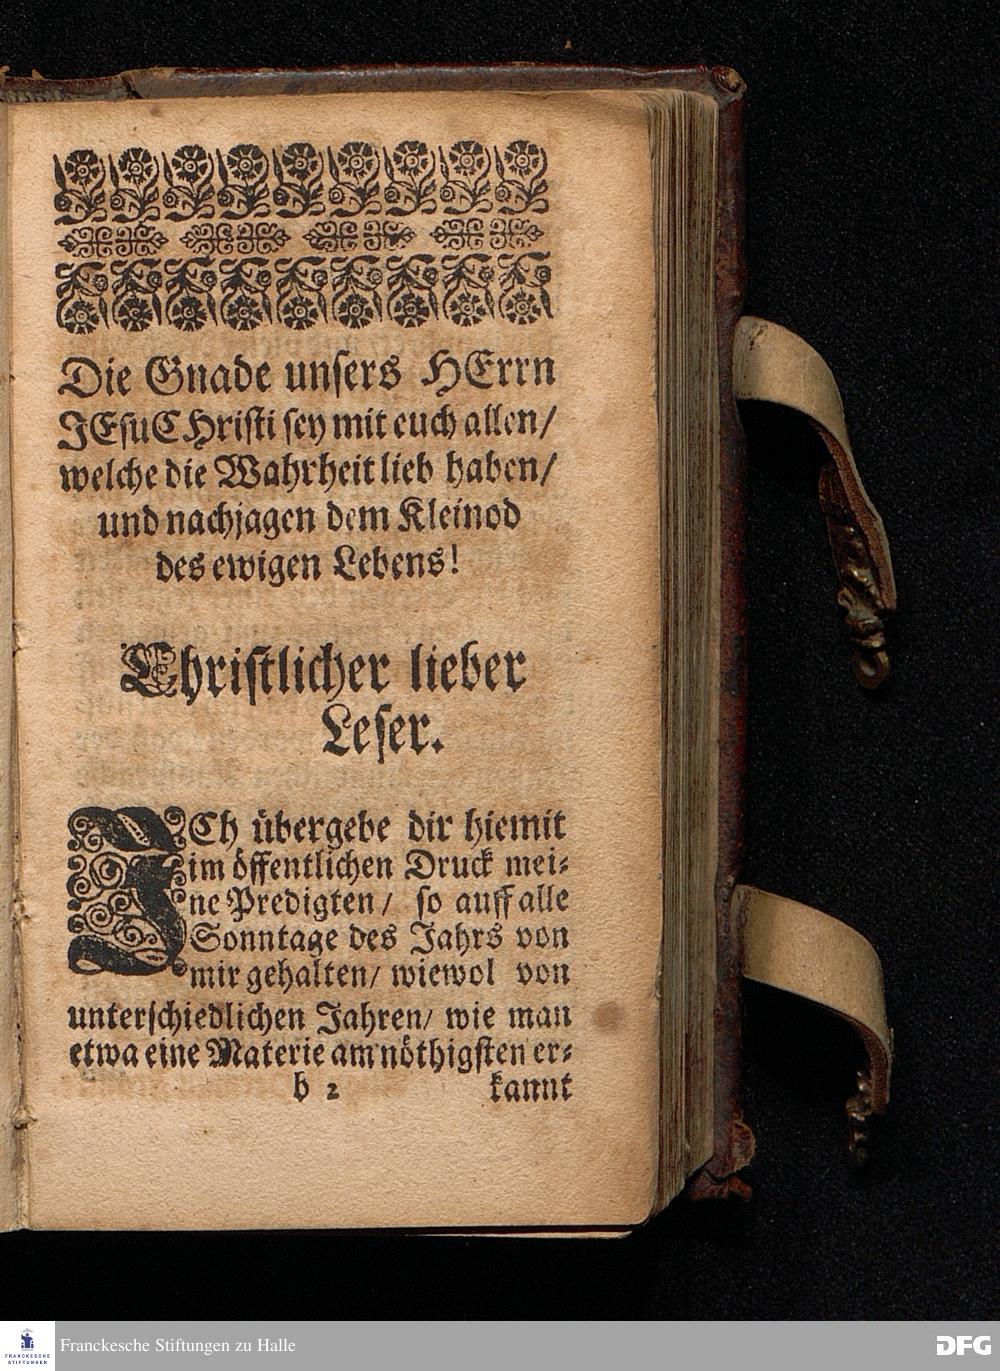 Die Gnade unsers HErrn
JEsu CHristi sey mit euch allen/
welche die Wahrheit lieb haben/
und nachjagen dem Kleinod
des ewigen Lebens!
Christlicher lieber
Leser.
ICh übergebe dir hiemit
im öffentlichen Druck mei-
ne Predigten/ so auff alle
Sonntage des Jahrs von
mir gehalten/ wiewol von
unterschiedlichen Jahren/ wie man
etwa eine Materie am nöthigsten er-
b 2 kannt
FRANCKESCHE
STIFTUNGEN
Franckesche Stiftungen zu Halle
DFG